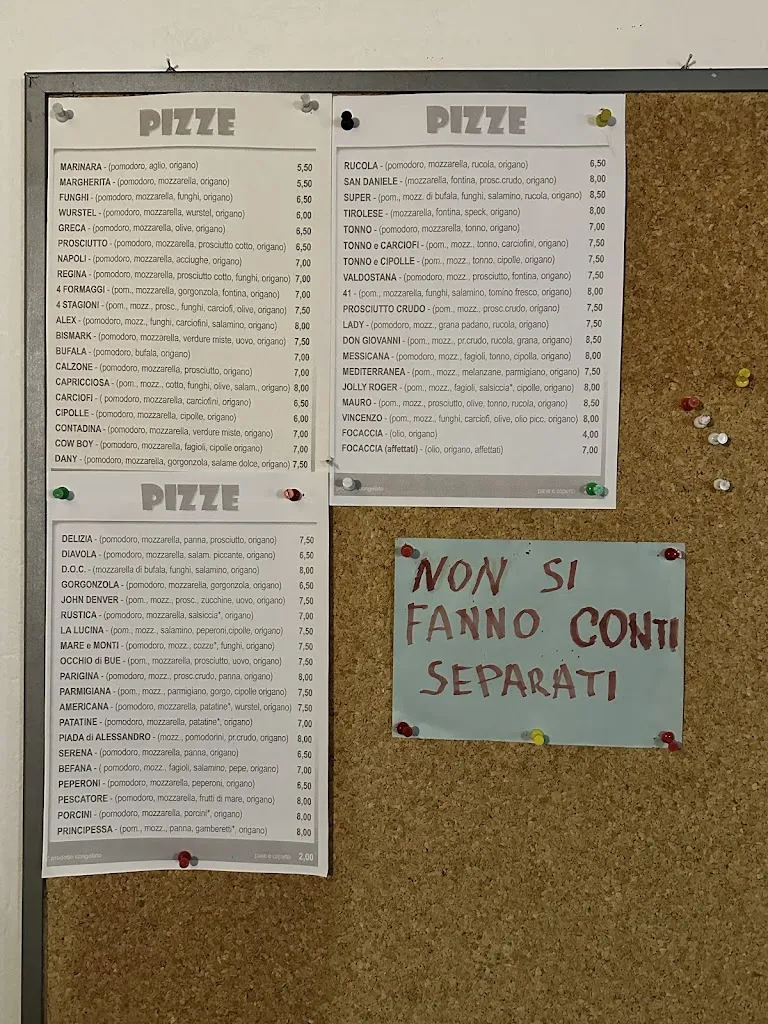 PIZZE
MARINARA - (pomodoro, aglio, origano) 5,50
MARGHERITA - (pomodoro, mozzarella, origano) 5,50
FUNGHI - (pomodoro, mozzarella, funghi, origano) 6,50
WURSTEL - (pomodoro, mozzarella, wurstel, origano) 6,00
GRECA - (pomodoro, mozzarella, olive, origano) 6,50
PROSCIUTTO - (pomodoro, mozzarella, prosciutto cotto, origano) 6,50
NAPOLI - (pomodoro, mozzarella, acciughe, origano) 7,00
REGINA - (pomodoro, mozzarella, prosciutto cotto, funghi, origano) 7,00
4 FORMAGGI - (pom., mozzarella, gorgonzola, fontina, origano) 7,00
4 STAGIONI - (pom., mozz., prosc., funghi, carciofi, olive, origano) 7,50
ALEX - (pomodoro, mozz., funghi, carciofini, salamino, origano) 8,00
BISMARK - (pomodoro, mozzarella, verdure miste, uovo, origano) 7,50
BUFALA - (pomodoro, bufala, origano) 7,00
CALZONE - (pomodoro, mozzarella, prosciutto, origano) 7,00
CAPRICCIOSA - (pom., mozz., cotto, funghi, olive, salam., origano) 8,00
CARCIOFI - ( pomodoro, mozzarella, carciofini, origano) 6,50
CIPOLLE - (pomodoro, mozzarella, cipolle, origano) 6,00
CONTADINA - (pomodoro, mozzarella, verdure miste, origano) 7,00
COW BOY - (pomodoro, mozzarella, fagioli, cipolle origano) 7,00
DANY - (pomodoro, mozzarella, gorgonzola, salame dolce, origano) 7,50
PIZZE
DELIZIA - (pomodoro, mozzarella, panna, prosciutto, origano) 7,50
DIAVOLA - (pomodoro, mozzarella, salam. piccante, origano) 6,50
D.O.C. - (mozzarella di bufala, funghi, salamino, origano) 8,00
GORGONZOLA - (pomodoro, mozzarella, gorgonzola, origano) 6,50
JOHN DENVER - (pom., mozz., prosc., zucchine, uovo, origano) 7,50
RUSTICA - (pomodoro, mozzarella, salsiccia*, origano) 7,00
LA LUCINA - (pom., mozz., salamino, peperoni,cipolle, origano) 7,50
MARE e MONTI - (pomodoro, mozz., cozze*, funghi, origano) 7,50
OCCHIO di BUE - (pom., mozzarella, prosciutto, uovo, origano) 7,50
PARIGINA - (pomodoro, mozz., prosc.crudo, panna, origano) 8,00
PARMIGIANA - (pom., mozz., parmigiano, gorgo, cipolle origano) 7,50
AMERICANA - (pomodoro, mozzarella, patatine*, wurstel, origano) 7,50
PATATINE - (pomodoro, mozzarella, patatine*, origano) 7,00
PIADA di ALESSANDRO - (mozz., pomodorini, pr.crudo, origano) 8,00
SERENA - (pomodoro, mozzarella, panna, origano) 6,50
BEFANA - ( pomodoro, mozz., fagioli, salamino, pepe, origano) 7,00
PEPERONI - (pomodoro, mozzarella, peperoni, origano) 6,50
PESCATORE - (pomodoro, mozzarella, frutti di mare, origano) 8,00
PORCINI - (pomodoro, mozzarella, porcini*, origano) 8,00
PRINCIPESSA - (pom., mozz., panna, gamberetti*, origano) 8,00
* prodotto congelato pane e coperto 2,00
PIZZE
RUCOLA - (pomodoro, mozzarella, rucola, origano) 6,50
SAN DANIELE - (mozzarella, fontina, prosc.crudo, origano) 8,00
SUPER - (pom., mozz. di bufala, funghi, salamino, rucola, origano) 8,50
TIROLESE - (mozzarella, fontina, speck, origano) 8,00
TONNO - (pomodoro, mozzarella, tonno, origano) 7,00
TONNO e CARCIOFI - (pom., mozz., tonno, carciofini, origano) 7,50
TONNO e CIPOLLE - (pom., mozz., tonno, cipolle, origano) 7,50
VALDOSTANA - (pomodoro, mozz., prosciutto, fontina, origano) 7,50
41 - (pom., mozzarella, funghi, salamino, tomino fresco, origano) 8,00
PROSCIUTTO CRUDO - (pom., mozz., prosc.crudo, origano) 7,50
LADY - (pomodoro, mozz., grana padano, rucola, origano) 7,50
DON GIOVANNI - (pom., mozz., pr.crudo, rucola, grana, origano) 8,50
MESSICANA - (pomodoro, mozz., fagioli, tonno, cipolla, origano) 8,00
MEDITERRANEA - (pom., mozz., melanzane, parmigiano, origano) 7,50
JOLLY ROGER - (pom., mozz., fagioli, salsiccia*, cipolle, origano) 8,00
MAURO - (pom., mozz., prosciutto, olive, tonno, rucola, origano) 8,50
VINCENZO - (pom., mozz., funghi, carciofi, olive, olio picc, origano) 8,00
FOCACCIA - (olio, origano) 4,00
FOCACCIA (affettati) - (olio, origano, affettati) 7,00
NON SI
FANNO CONTI
SEPARATI